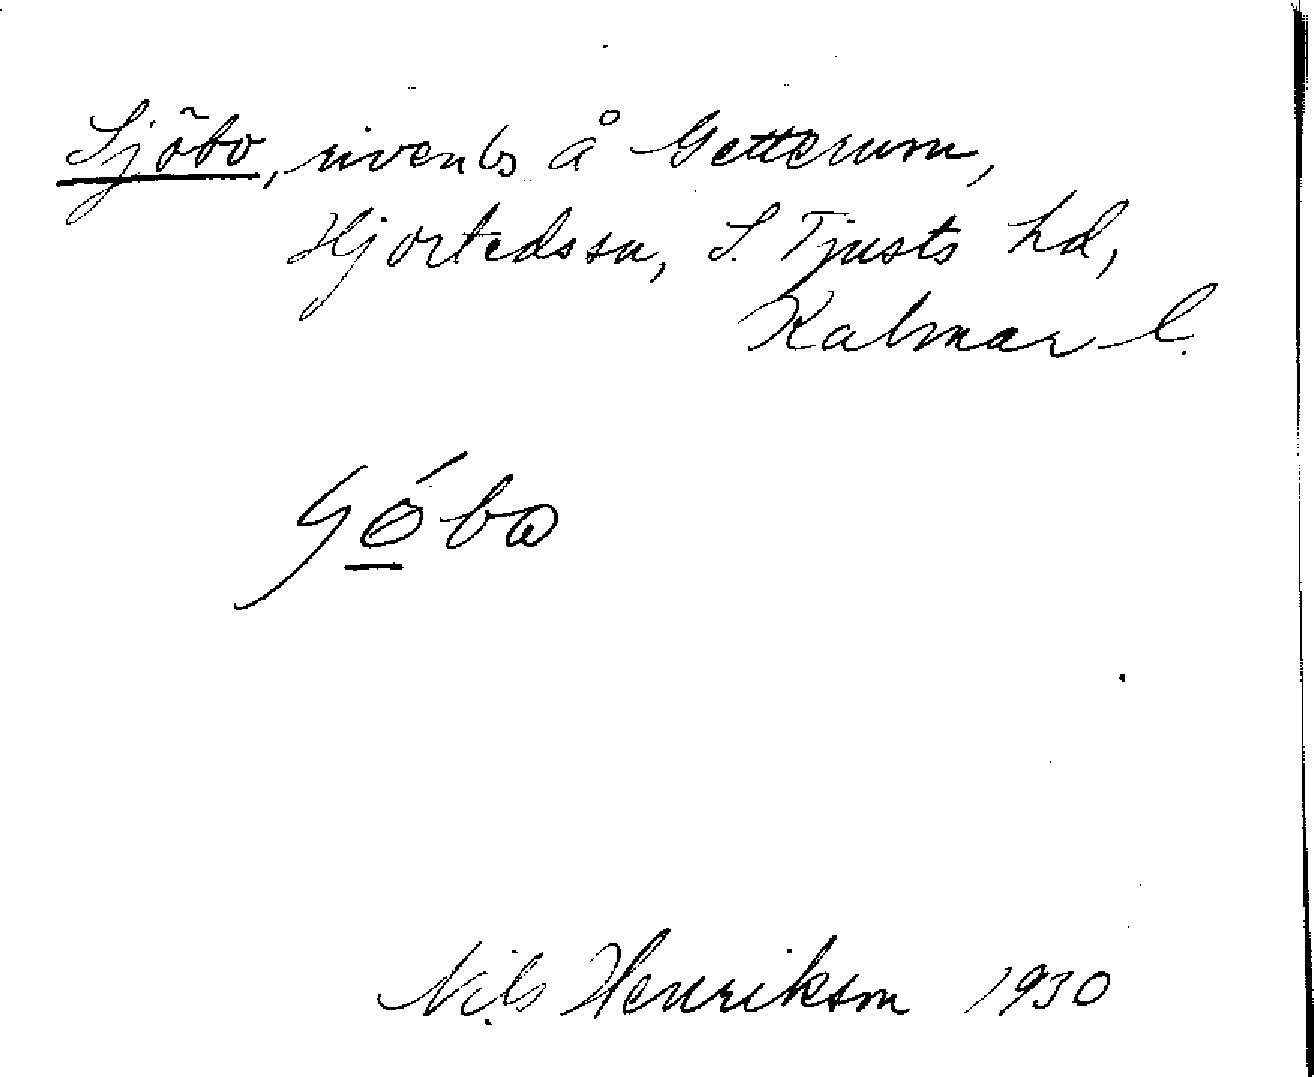 Sjöbo, riven ls å Getterum,
Hjorteds sn, S. Tjusts hd,
Kalmar l.
Nils Henrikson 1930